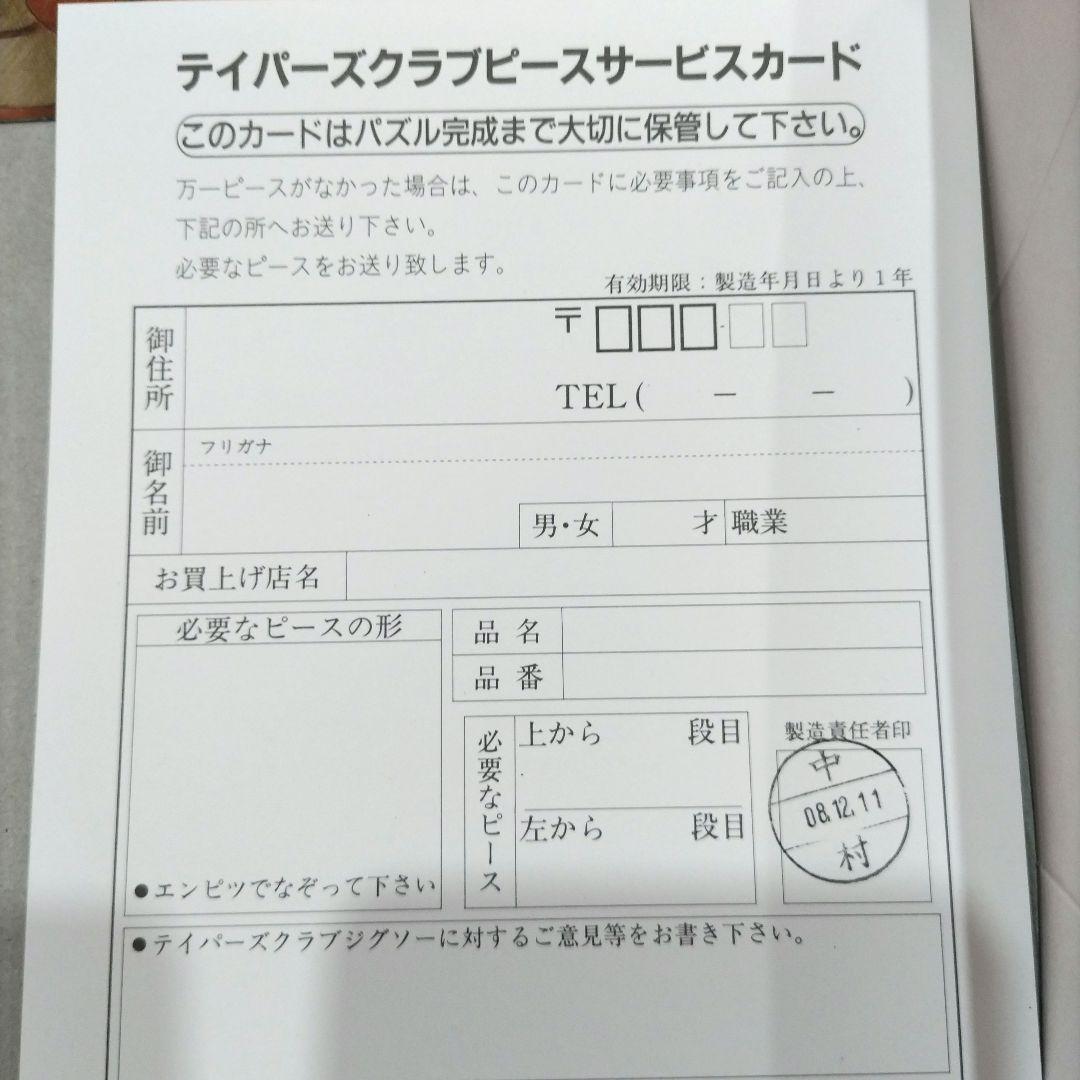 テイパーズクラブピースサービスカード
このカードはパズル完成まで大切に保管して下さい。
万一ピースがなかった場合は、このカードに必要事項をご記入の上、
下記の所へお送り下さい。
必要なピースをお送り致します。
有効期限：製造年月日より1年
御住所
〒
TEL(　－　－　)
御名前
フリガナ
男・女
才
職業
お買上げ店名
必要なピースの形
●エンピツでなぞって下さい
品名
品番
必要なピース
上から　段目
左から　段目
製造責任者印
中
08.12.11
村
●テイパーズクラブジグソーに対するご意見等をお書き下さい。